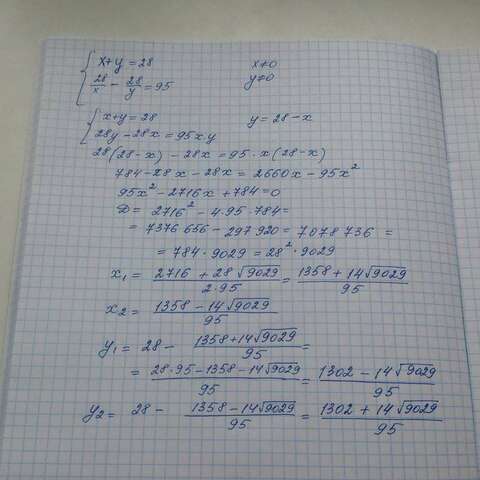 x+y=28 x≠0
28/x - 28/y = 95 y≠0
x+y=28 y=28-x
28y-28x=95xy
28(28-x)-28x=95·x(28-x)
784-28x-28x=2660x-95x²
95x²-2716x+784=0
D=2716²-4·95·784=
=7376656-297920=7078736=
=784·9029=28²·9029
x₁=(2716+28√9029)/(2·95)=(1358+14√9029)/95
x₂=(1358-14√9029)/95
y₁=28-(1358+14√9029)/95=
=(28·95-1358-14√9029)/95=(1302-14√9029)/95
y₂=28-(1358-14√9029)/95=(1302+14√9029)/95